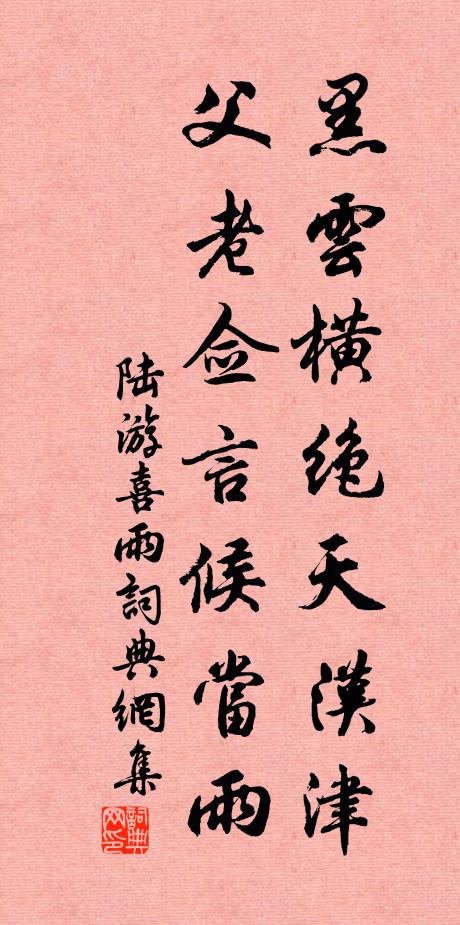 黑雲橫絶天漢津
父老僉言候當雨
陸游喜雨詞典網集
詞典网印